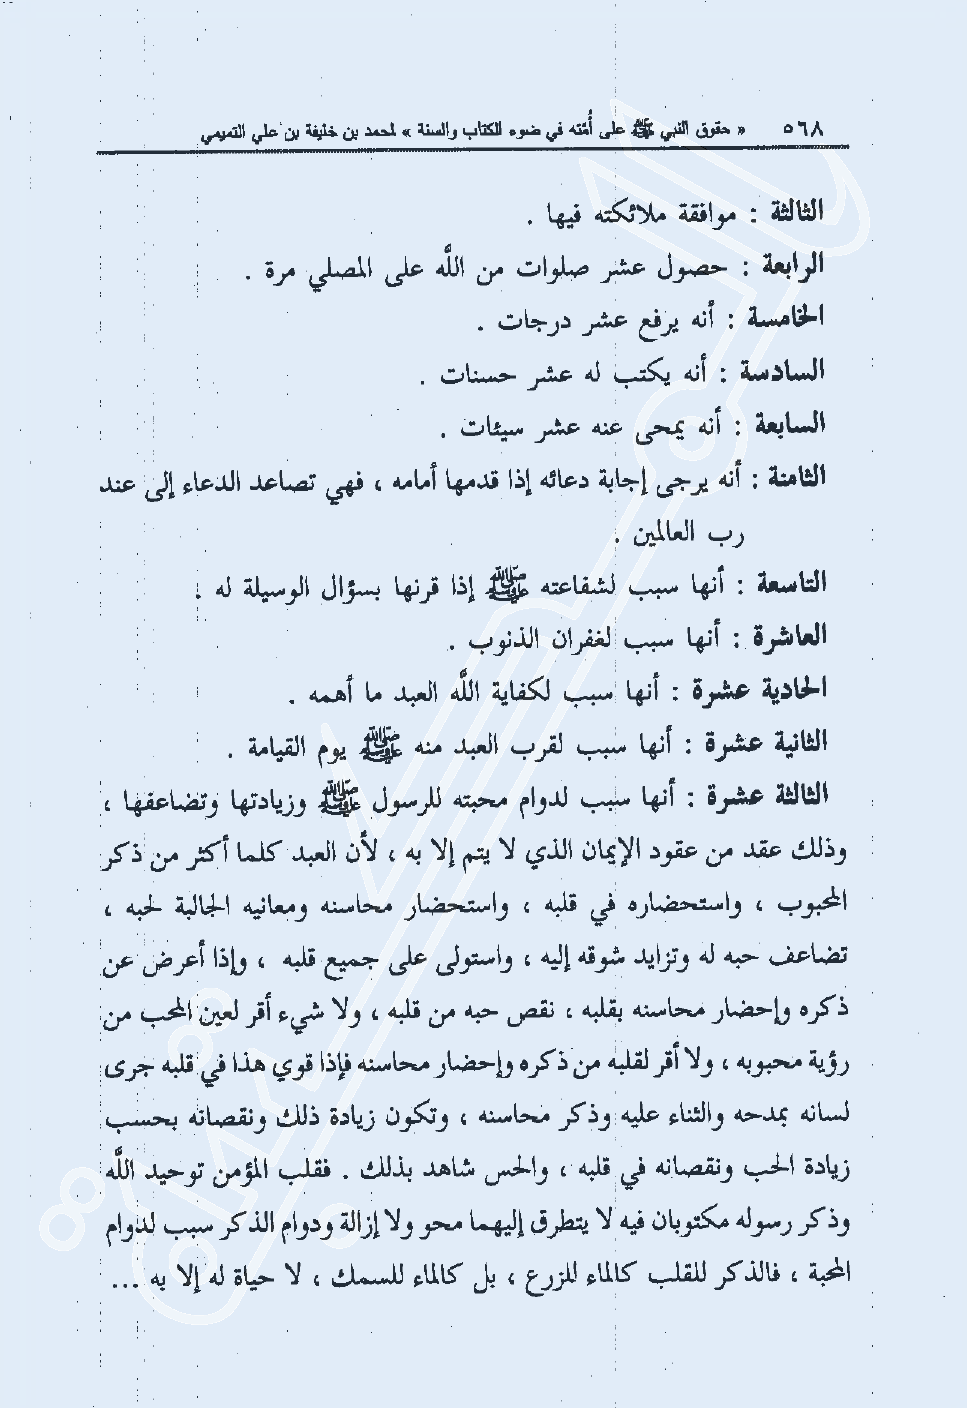 ٥٦٨ « حقوق النبي ﷺ على أُمَّته في ضوء الكتاب والسنة » لمحمد بن خليفة بن علي التميمي
الثالثة : موافقة ملائكته فيها .
الرابعة : حصول عشر صلوات من اللَّه على المصلي مرة .
الخامسة : أنه يرفع عشر درجات .
السادسة : أنه يكتب له عشر حسنات .
السابعة : أنه يمحى عنه عشر سيئات .
الثامنة : أنه يرجى إجابة دعائه إذا قدمها أمامه ، فهي تصاعد الدعاء إلى عند
رب العالمين .
التاسعة : أنها سبب لشفاعته ﷺ إذا قرنها بسؤال الوسيلة له .
العاشرة : أنها سبب لغفران الذنوب .
الحادية عشرة : أنها سبب لكفاية اللَّه العبد ما أهمه .
الثانية عشرة : أنها سبب لقرب العبد منه ﷺ يوم القيامة .
الثالثة عشرة : أنها سبب لدوام محبته للرسول ﷺ وزيادتها وتضاعفها ،
وذلك عقد من عقود الإيمان الذي لا يتم إلا به ، لأن العبد كلما أكثر من ذكر
المحبوب ، واستحضاره في قلبه ، واستحضار محاسنه ومعانيه الجالبة لحبه ،
تضاعف حبه له وتزايد شوقه إليه ، واستولى على جميع قلبه ، وإذا أعرض عن
ذكره وإحضار محاسنه بقلبه ، نقص حبه من قلبه ، ولا شيء أقر لعين المحب من
رؤية محبوبه ، ولا أقر لقلبه من ذكره وإحضار محاسنه فإذا قوي هذا في قلبه جرى
لسانه بمدحه والثناء عليه وذكر محاسنه ، وتكون زيادة ذلك ونقصانه بحسب
زيادة الحب ونقصانه في قلبه ، والحس شاهد بذلك . فقلب المؤمن توحيد اللَّه
وذكر رسوله مكتوبان فيه لا يتطرق إليهما محو ولا إزالة ودوام الذكر سبب لدوام
المحبة ، فالذكر للقلب كالماء للزرع ، بل كالماء للسمك ، لا حياة له إلا به ...